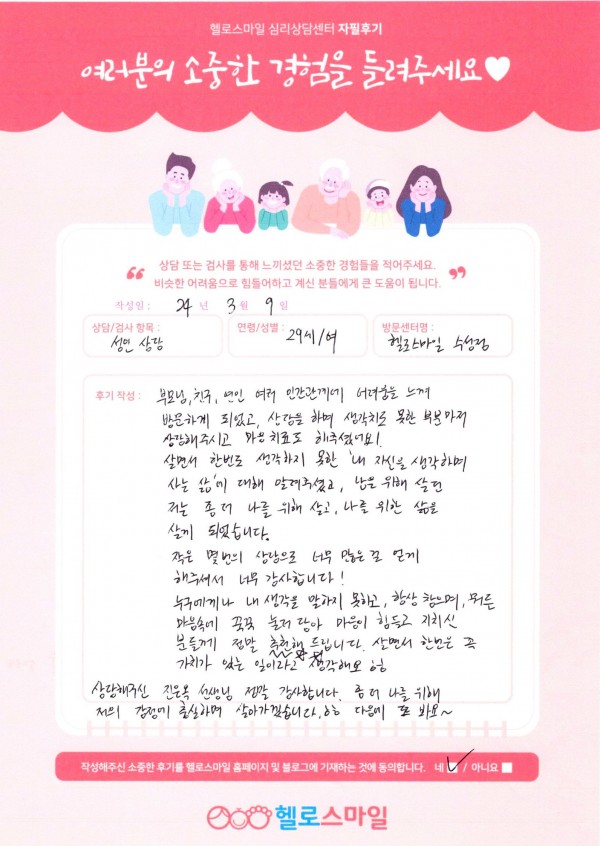 헬로스마일 심리상담센터 자필후기
여러분의 소중한 경험을 들려주세요♥
“ 상담 또는 검사를 통해 느끼셨던 소중한 경험들을 적어주세요.
비슷한 어려움으로 힘들어하고 계신 분들에게 큰 도움이 됩니다. ”
작성일 : 24 년 3 월 9 일
상담/검사 항목 : 성인 상담
연령/성별 : 29세/여
방문센터명 : 헬로스마일 수성점
후기 작성 : 부모님, 친구, 연인 여러 인간관계에 어려움을 느껴
방문하게 되었고, 상담을 하며 생각치도 못한 부분마저
상담해주시고 마음치료도 해주셨어요!
살면서 한번도 생각하지 못한 '내 자신을 생각하며
사는 삶'에 대해 알려주셨고, 남을 위해 살던
저는 좀 더 나를 위해 살고, 나를 위한 삶을
살게 되었습니다.
작은 몇번의 상담으로 너무 많은걸 얻게
해주셔서 너무 감사합니다!
누구에게나 내 생각을 말하지 못하고, 항상 참으며, 뭐든
마음속에 꾹꾹 눌러 담아 마음이 힘들고 지치신
분들께 정말 추천해 드립니다. 살면서 한번은 꼭
가치가 있는 일이라고 생각해요 ㅎㅎ
상담해주신 진은옥 선생님 정말 감사합니다. 좀 더 나를 위해
저의 감정에 충실하며 살아가겠습니다.ㅎㅎ 다음에 또 봐요~
작성해주신 소중한 후기를 헬로스마일 홈페이지 및 블로그에 기재하는 것에 동의합니다. 네 ✓ / 아니요 ■
헬로스마일